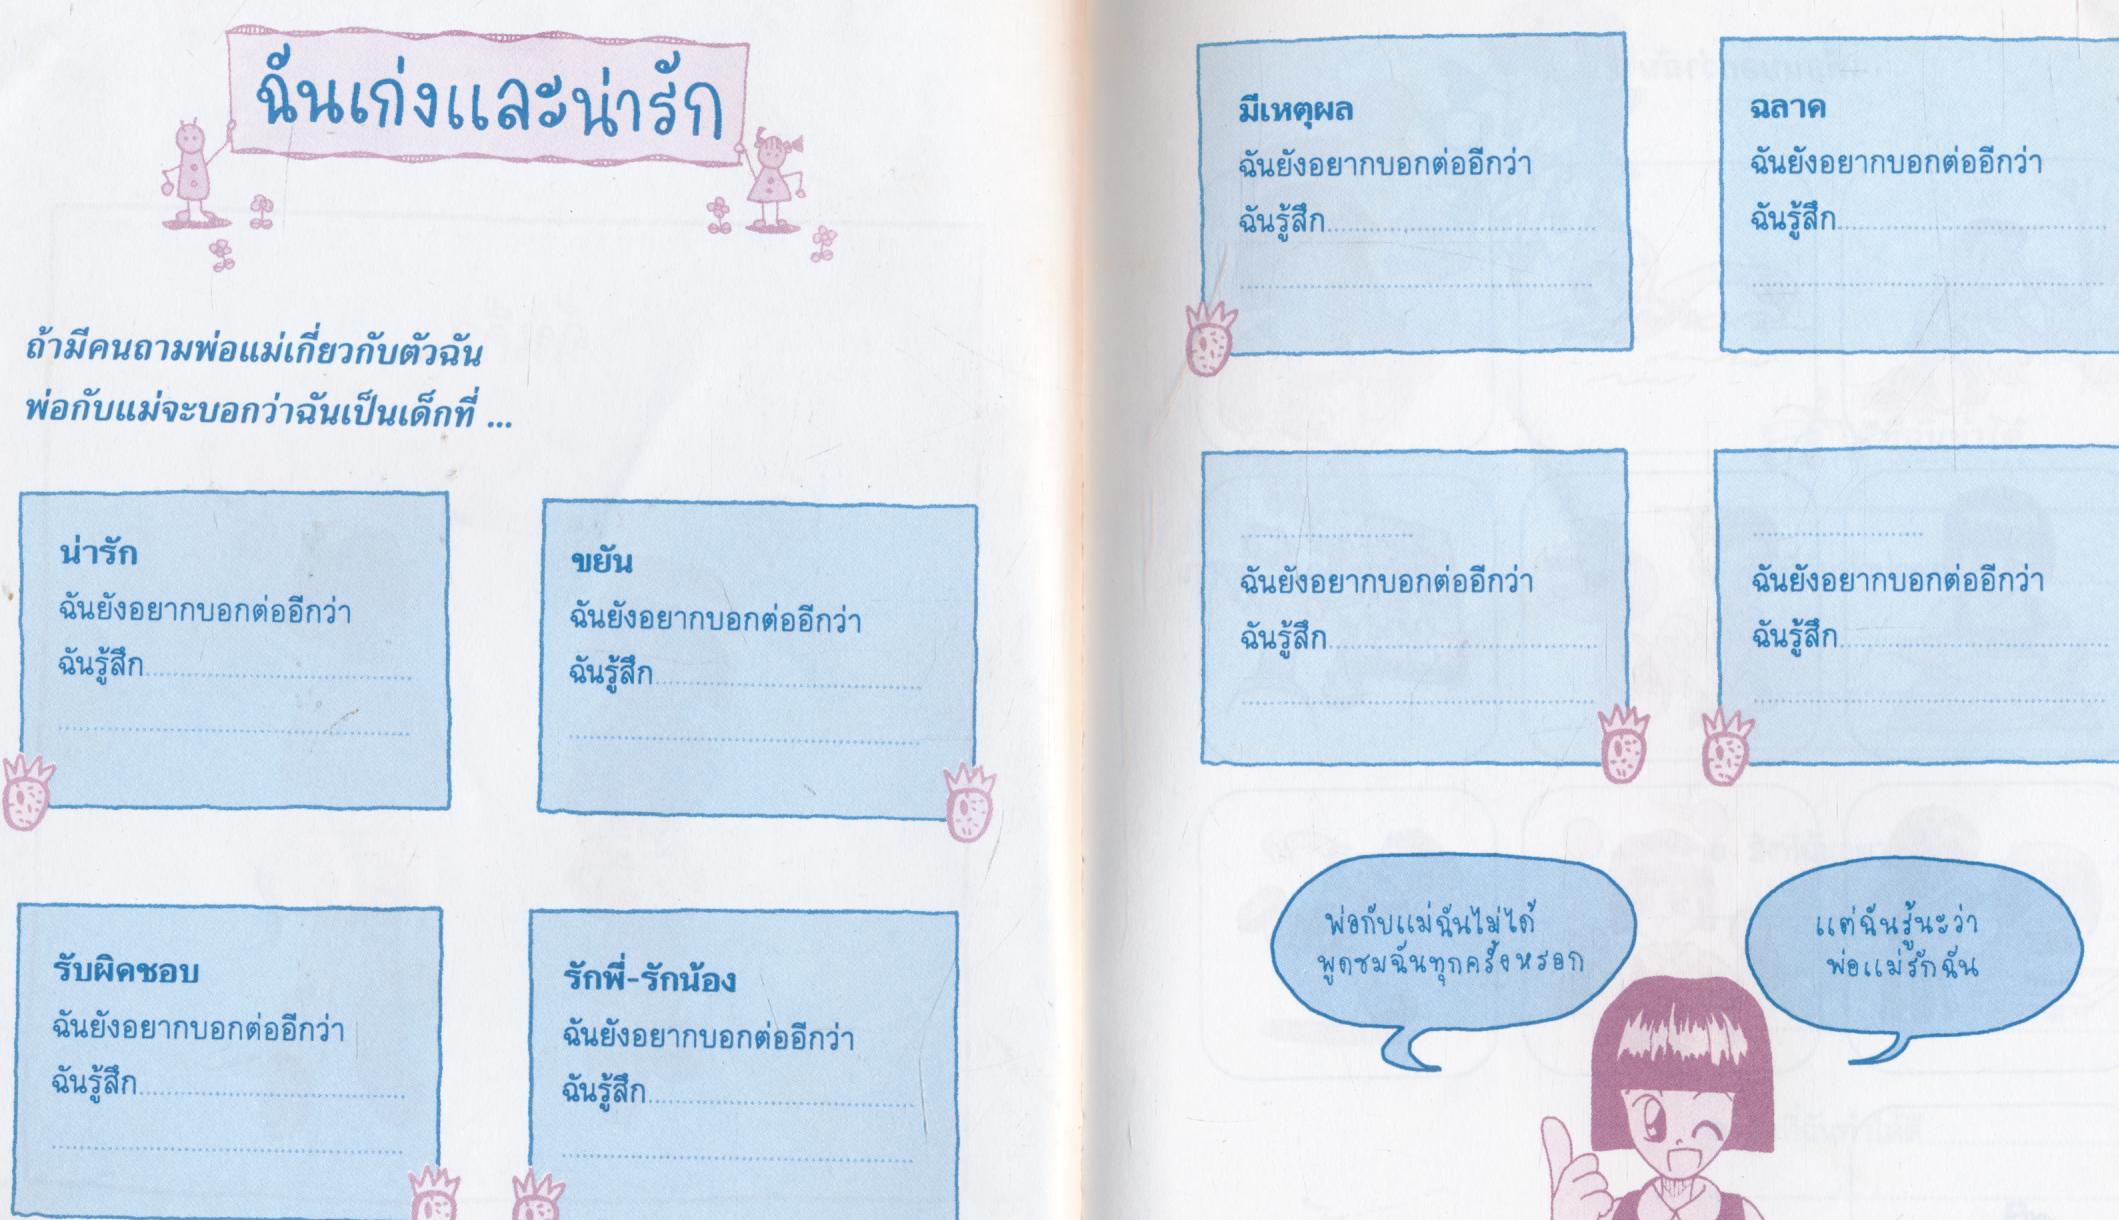 ฉันเก่งและน่ารัก
ถ้ามีคนถามพ่อแม่เกี่ยวกับตัวฉัน
พ่อกับแม่จะบอกว่าฉันเป็นเด็กที่ ...
น่ารัก
ฉันยังอยากบอกต่ออีกว่า
ฉันรู้สึก
ขยัน
ฉันยังอยากบอกต่ออีกว่า
ฉันรู้สึก
รับผิดชอบ
ฉันยังอยากบอกต่ออีกว่า
ฉันรู้สึก
รักพี่-รักน้อง
ฉันยังอยากบอกต่ออีกว่า
ฉันรู้สึก
มีเหตุผล
ฉันยังอยากบอกต่ออีกว่า
ฉันรู้สึก
ฉลาด
ฉันยังอยากบอกต่ออีกว่า
ฉันรู้สึก
ฉันยังอยากบอกต่ออีกว่า
ฉันรู้สึก
ฉันยังอยากบอกต่ออีกว่า
ฉันรู้สึก
พ่อกับแม่ฉันไม่ได้
พูดชมฉันทุกครั้งหรอก
แต่ฉันรู้นะว่า
พ่อแม่รักฉัน